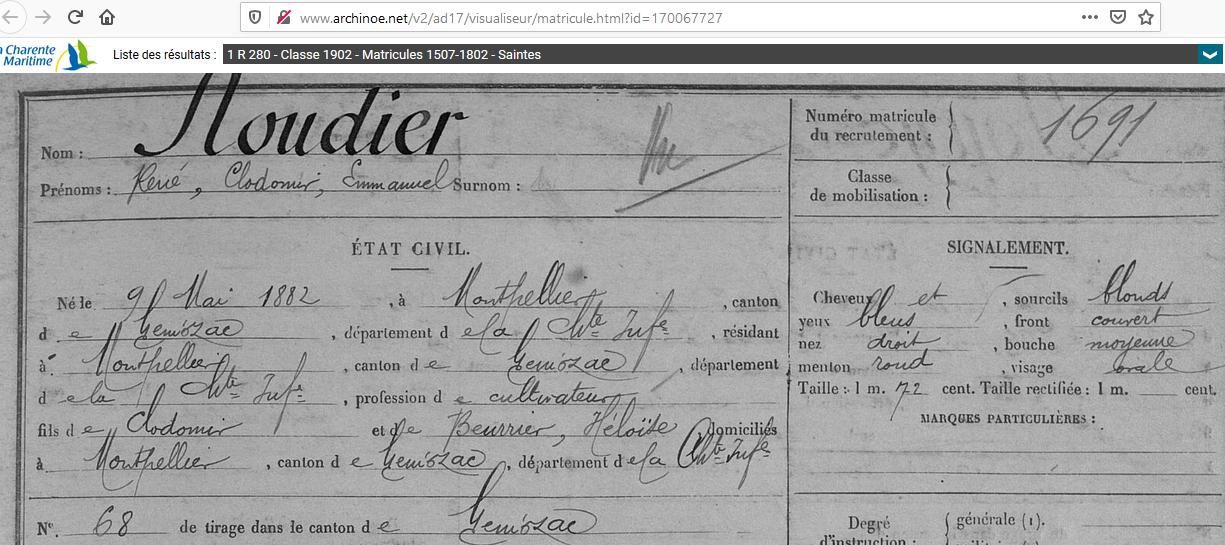 www.archinoe.net/v2/ad17/visualiseur/matricule.html?id=170067727
La Charente
Maritime
Liste des résultats : 1 R 280 - Classe 1902 - Matricules 1507-1802 - Saintes
Nom : Roudier
Prénoms : René, Clodomir, Emmanuel Surnom :
Numéro matricule
du recrutement : 1691
Classe
de mobilisation :
ÉTAT CIVIL.
Né le 9 Mai 1882, à Montpellier, canton
de Gemozac, département de la Chte Infre, résidant
à Montpellier, canton de Gemozac, département
de la Chte Infre, profession de cultivateur
fils de Clodomir et de Beurrier, Héloïse domiciliés
à Montpellier, canton de Gemozac, département de la Chte Infre
No. 68 de tirage dans le canton de Gemozac
SIGNALEMENT.
Cheveux et, sourcils blonds
yeux bleus, front couvert
nez droit, bouche moyenne
menton rond, visage ovale
Taille : 1 m. 72 cent. Taille rectifiée : 1 m. cent.
MARQUES PARTICULIÈRES :
Degré
d'instruction :
générale (1).